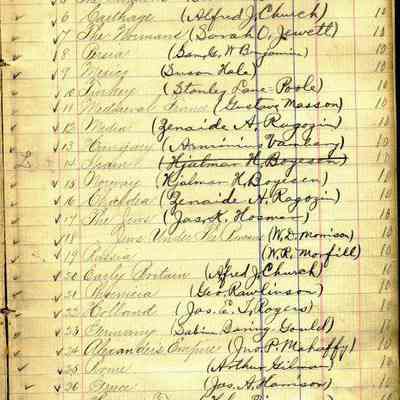 6 Carthage (Alfred J. Church) 10
7 The Normans (Sarah O. Jewett) 10
8 Persia (Sam. G. W. Benjamin) 10
9 Mexico (Susan Hale) 10
10 Turkey (Stanley Lane-Poole) 10
11 Mediaeval France (Gustave Masson) 10
12 Media (Zenaide A. Ragozin) 10
13 Hungary (Arminius Vambery) 10
14 (Hjalmar H. Boyesen) 10
15 Norway (Hjalmar H. Boyesen) 10
16 Chaldea (Zenaide A. Ragozin) 10
17 The Jews (Jas. K. Hosmer) 10
18 Jews Under the Romans (W. D. Morrison) 10
19 Russia (W. R. Morfill) 10
20 Early Britain (Alfred J. Church) 10
21 Phoenicia (Geo. Rawlinson) 10
22 Holland (Jas. E. T. Rogers) 10
23 Germany (Sabin Baring Gould) 10
24 Alexander's Empire (Jno. P. Mahaffy) 10
25 Rome (Arthur Gilman) 10
26 Greece (Jas. A. Harrison) 10